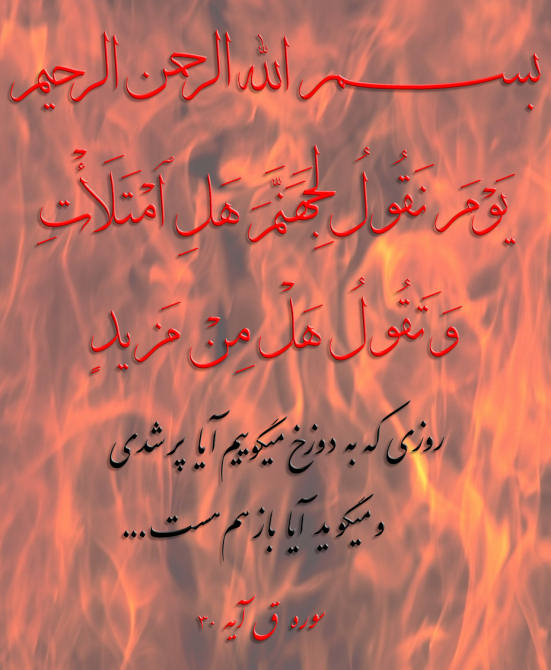 بسم الله الرحمن الرحيم
يَوْمَ نَقُولُ لِجَهَنَّمَ هَلِ ٱمْتَلَأْتِ
وَتَقُولُ هَلْ مِنْ مَزِيدٍ
روزی که به دوزخ میگوییم آیا پر شدی
و میگوید آیا باز هم هست...
سوره ق آیه ۳۰